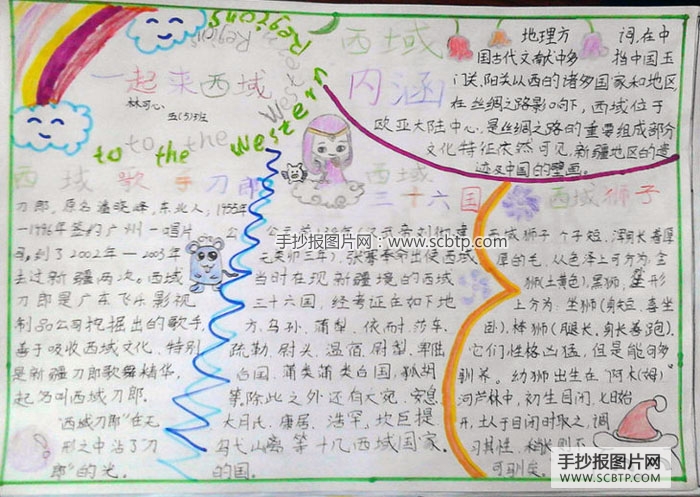 Regions
Western Regions
一起来西域
林可心
五(5)班
to the
to the western
西域
内涵
地理方 词,在中
国古代文献中多 指中国玉
门关、阳关以西的诸多国家和地区,
在丝绸之路影响下,西域位于
欧亚大陆中心,是丝绸之路的重要组成部分
文化特征依然可见,新疆地区的遗
迹及中国的壁画。
西域歌手刀郎
刀郎,原名潘晓峰,东北人,1955年
—1996年签约广州一唱片
司,到了2002年—2003年
去过新疆两次。西域
刀郎是广东飞乐影视
制品公司挖掘出的歌手,
善于吸收西域文化、特别
是新疆刀郎歌舞精华,
起名叫西域刀郎。
"西域刀郎"在无
形之中沾了"刀
郎"的光。
西域
三十六国
公元前138年(汉武帝刘彻建
元癸卯三年),张骞奉命出使西域
当时在现新疆境的西域
三十六国,经考证在如下地
方,乌孙、蒲犁、依耐、莎车、
疏勒、尉头、温宿、尉犁、卑陆
台国、蒲类蒲类台国、狐胡
等。除此之外还有大宛、安息、
大月氏、康居、浩罕、坎巨提、
乌弋山离等十几西域国家。
的国。
西域狮子
西域狮子个子短,浑身长着厚
厚的毛,从色泽上可分为:金
狮(土黄色),黑狮,
上分为:坐狮(身短、喜坐
回),棒狮(腿长,身长善跑)。
它们性格凶猛,但是能够
驯养。幼狮出生在"阿木(姆)
河芦林中,初生目闭,七日始
开,土人于目闭时取之,调
习其性,稍长则不
可驯矣。
手抄报图片网:www.scbtp.com
手抄报图片网
WWW.SCBTP.COM